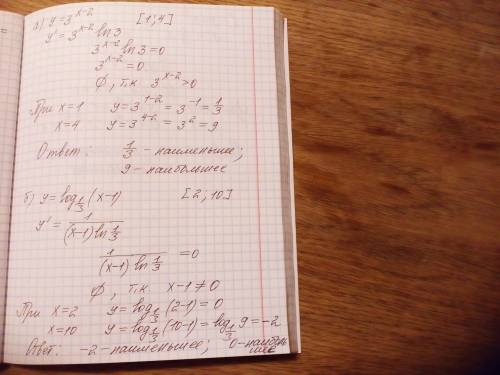 а) y = 3^{x-2}    [1; 4]
y' = 3^{x-2} ln 3
3^{x-2} ln 3 = 0
3^{x-2} = 0
∅, т.к. 3^{x-2} > 0
При x = 1    y = 3^{1-2} = 3^{-1} = 1/3
x = 4    y = 3^{4-2} = 3^2 = 9
Ответ: 1/3 - наименьшее;
9 - наибольшее
б) y = log_{1/3} (x-1)    [2; 10]
y' = 1/((x-1) ln 1/3)
1/((x-1) ln 1/3) = 0
∅, т.к. x-1 ≠ 0
При x = 2    y = log_{1/3} (2-1) = 0
x = 10    y = log_{1/3} (10-1) = log_{1/3} 9 = -2
Ответ: -2 - наименьшее; 0 - наиболь
шее